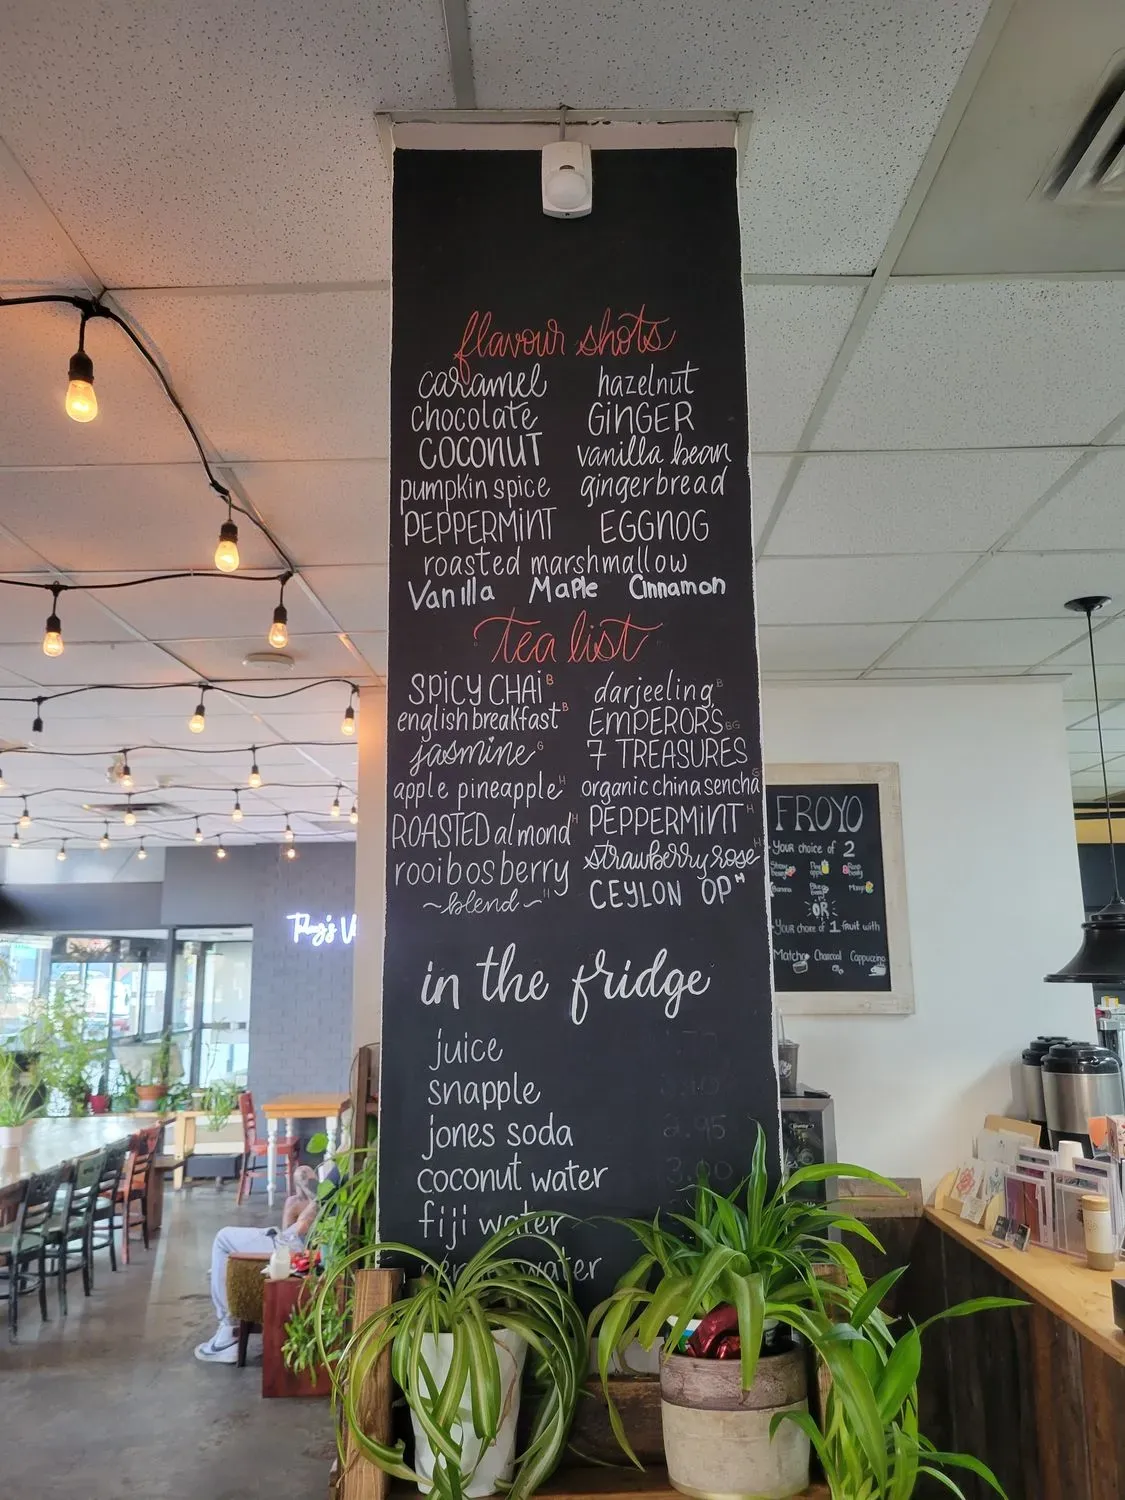 flavour shots
caramel hazelnut
chocolate GINGER
COCONUT vanilla bean
pumpkin spice gingerbread
PEPPERMINT EGGNOG
roasted marshmallow
Vanilla Maple Cinnamon
tea list
SPICY CHAI B darjeeling B
english breakfast B EMPERORS BG
jasmine G 7 TREASURES
apple pineapple H organic china sencha G
ROASTED almond H PEPPERMINT H
rooibos berry strawberry rose H
~blend~ H CEYLON OP H
in the fridge
juice
snapple
jones soda 2.95
coconut water 3.00
fiji water
water
FROYO
Your choice of 2
Banana Mango
OR
Your choice of 1 fruit with
Matcha Charcoal Cappuccino